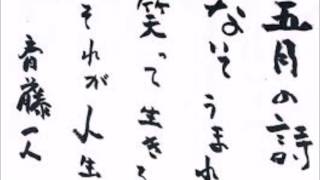 五月の詩
ないてうまれ
笑って生きる
それが人生
斉藤一人